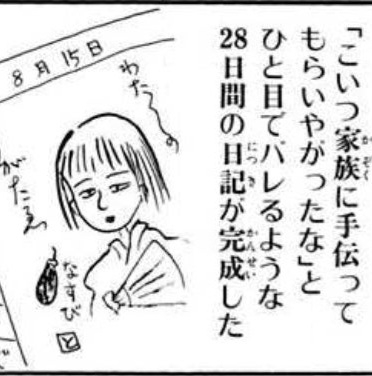 「こいつ家族に手伝って
もらいやがったな」と
ひと目でバレるような
28日間の日記が完成した
かぞく
につき
かんせい
8月15日
わた〜の
がたゑ
なすび
と